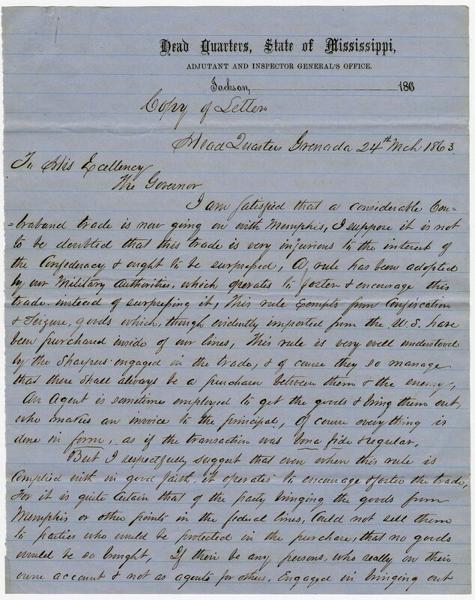 Head Quarters, State of Mississippi,
ADJUTANT AND INSPECTOR GENERAL'S OFFICE.
Jackson, 186
Copy of Letter
Head Quarters Grenada 24th Mch 1863
To His Excellency
The Governor
I am satisfied that a considerable Con-
-traband trade is now going on with Memphis, I suppose it is not
to be doubted that this trade is very injurious to the interest of
the Confederacy & ought to be surpressed, A rule has been adopted
by our Military Authorities, which operates to foster & encourage this
trade instead of surpressing it, This rule Exempts from Confiscation
& Seizure, goods which, though evidently imported from the U.S. have
been purchased inside of our lines, This rule is very well understood
by the Sharpers engaged in the trade, & of course they so manage
that there shall always be a purchaser between them & the enemy,
An Agent is sometime employed to get the goods & bring them out,
who makes an invoice to the principal, of course everything is
done in form, as if the transaction was bona fide & regular,
But I respectfully suggest that even when this rule is
complied with in good faith, it operates to encourage & foster the trade,
for it is quite certain that if the party bringing the goods from
Memphis or other points in the fedual lines, could not sell them
to parties who would be protected in the purchase, that no goods
would be so bought, If their be any persons, who really on their
own account & not as agents for others, engaged in bringing out